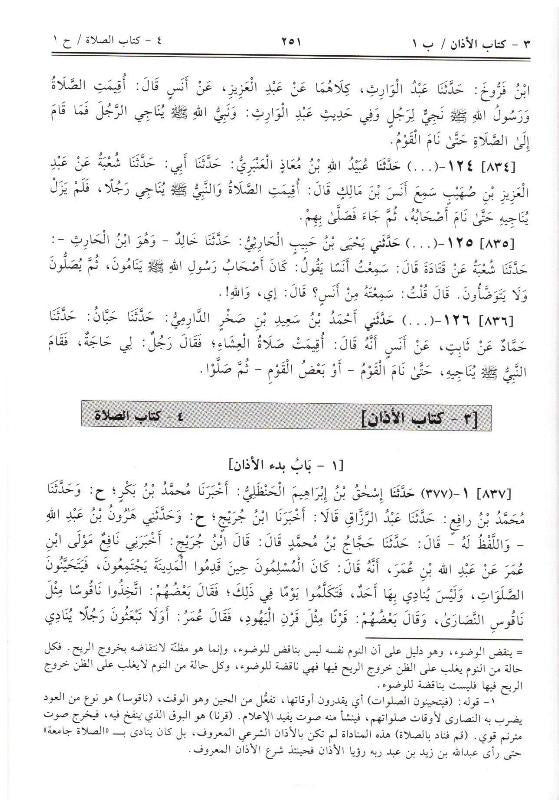 ٣ - كتاب الأذان / ب ١ ٢٥١ ٤ - كتاب الصلاة / ح ١
ابْنُ فَرُّوخَ: حَدَّثَنَا عَبْدُ الْوَارِثِ، كِلَاهُمَا عَنْ عَبْدِ الْعَزِيزِ، عَنْ أَنَسٍ قَالَ: أُقِيمَتِ الصَّلَاةُ
وَرَسُولُ اللهِ ﷺ نَجِيٌّ لِرَجُلٍ وَفِي حَدِيثِ عَبْدِ الْوَارِثِ: وَنَبِيُّ اللهِ ﷺ يُنَاجِي الرَّجُلَ فَمَا قَامَ
إِلَى الصَّلَاةِ حَتَّى نَامَ الْقَوْمُ.
[٨٣٤] ١٢٤-(...) حَدَّثَنَا عُبَيْدُ اللهِ بْنُ مُعَاذٍ الْعَنْبَرِيُّ: حَدَّثَنَا أَبِي: حَدَّثَنَا شُعْبَةُ عَنْ عَبْدِ
الْعَزِيزِ بْنِ صُهَيْبٍ سَمِعَ أَنَسَ بْنَ مَالِكٍ قَالَ: أُقِيمَتِ الصَّلَاةُ وَالنَّبِيُّ ﷺ يُنَاجِي رَجُلًا، فَلَمْ يَزَلْ
يُنَاجِيهِ حَتَّى نَامَ أَصْحَابُهُ، ثُمَّ جَاءَ فَصَلَّى بِهِمْ.
[٨٣٥] ١٢٥-(...) حَدَّثَنِي يَحْيَى بْنُ حَبِيبٍ الْحَارِثِيُّ: حَدَّثَنَا خَالِدٌ - وَهُوَ ابْنُ الْحَارِثِ -:
حَدَّثَنَا شُعْبَةُ عَنْ قَتَادَةَ قَالَ: سَمِعْتُ أَنَسًا يَقُولُ: كَانَ أَصْحَابُ رَسُولِ اللهِ ﷺ يَنَامُونَ، ثُمَّ يُصَلُّونَ
وَلَا يَتَوَضَّأُونَ. قَالَ قُلْتُ: سَمِعْتَهُ مِنْ أَنَسٍ؟ قَالَ: إِي، وَاللهِ!.
[٨٣٦] ١٢٦-(...) حَدَّثَنِي أَحْمَدُ بْنُ سَعِيدِ بْنِ صَخْرٍ الدَّارِمِيُّ: حَدَّثَنَا حَبَّانُ: حَدَّثَنَا
حَمَّادٌ عَنْ ثَابِتٍ، عَنْ أَنَسٍ أَنَّهُ قَالَ: أُقِيمَتْ صَلَاةُ الْعِشَاءِ؛ فَقَالَ رَجُلٌ: لِي حَاجَةٌ، فَقَامَ
النَّبِيُّ ﷺ يُنَاجِيهِ، حَتَّى نَامَ الْقَوْمُ - أَوْ بَعْضُ الْقَوْمِ - ثُمَّ صَلَّوْا.
[٣ - كتاب الأذان] ٤ - كتاب الصلاة
[١ - بَابُ بدء الأذان]
[٨٣٧] ١-(٣٧٧) حَدَّثَنَا إِسْحٰقُ بْنُ إِبْرَاهِيمَ الْحَنْظَلِيُّ: أَخْبَرَنَا مُحَمَّدُ بْنُ بَكْرٍ؛ ح: وَحَدَّثَنَا
مُحَمَّدُ بْنُ رَافِعٍ: حَدَّثَنَا عَبْدُ الرَّزَّاقِ قَالَا: أَخْبَرَنَا ابْنُ جُرَيْجٍ؛ ح: وَحَدَّثَنِي هَرُونُ بْنُ عَبْدِ اللهِ
- وَاللَّفْظُ لَهُ - قَالَ: حَدَّثَنَا حَجَّاجُ بْنُ مُحَمَّدٍ قَالَ: قَالَ ابْنُ جُرَيْجٍ: أَخْبَرَنِي نَافِعٌ مَوْلَى ابْنِ
عُمَرَ عَنْ عَبْدِ اللهِ بْنِ عُمَرَ، أَنَّهُ قَالَ: كَانَ الْمُسْلِمُونَ حِينَ قَدِمُوا الْمَدِينَةَ يَجْتَمِعُونَ، فَيَتَحَيَّنُونَ
الصَّلَوَاتِ، وَلَيْسَ يُنَادِي بِهَا أَحَدٌ، فَتَكَلَّمُوا يَوْمًا فِي ذٰلِكَ؛ فَقَالَ بَعْضُهُمْ: اتَّخِذُوا نَاقُوسًا مِثْلَ
نَاقُوسِ النَّصَارَى، وَقَالَ بَعْضُهُمْ: قَرْنًا مِثْلَ قَرْنِ الْيَهُودِ، فَقَالَ عُمَرُ: أَوَلَا تَبْعَثُونَ رَجُلًا يُنَادِي
= ينقض الوضوء، وهو دليل على أن النوم نفسه ليس بناقض للوضوء، وإنما هو مظنّة لانتقاضه بخروج الريح. فكل
حالة من النوم يغلب على الظن خروج الريح فيها فهي ناقضة للوضوء، وكل حالة من النوم لايغلب على الظن خروج
الريح فيها فليست بناقضة للوضوء.
١- قوله: (فيتحينون الصلوات) أي يقدرون أوقاتها، تفعُّل من الحين وهو الوقت، (ناقوسا) هو نوع من العود
يضرب به النصارى لأوقات صلواتهم، فينشأ منه صوت يفيد الإعلام. (قرنا) هو البوق الذي ينفخ فيه، فيخرج صوت
مترنم قوي. (قم فناد بالصلاة) هذه المناداة لم تكن بالأذان الشرعي المعروف، بل كان ينادى بــ «الصلاة جامعة»
حتى رأى عبدالله بن زيد بن عبد ربه رؤيا الأذان فحينئذ شرع الأذان المعروف.